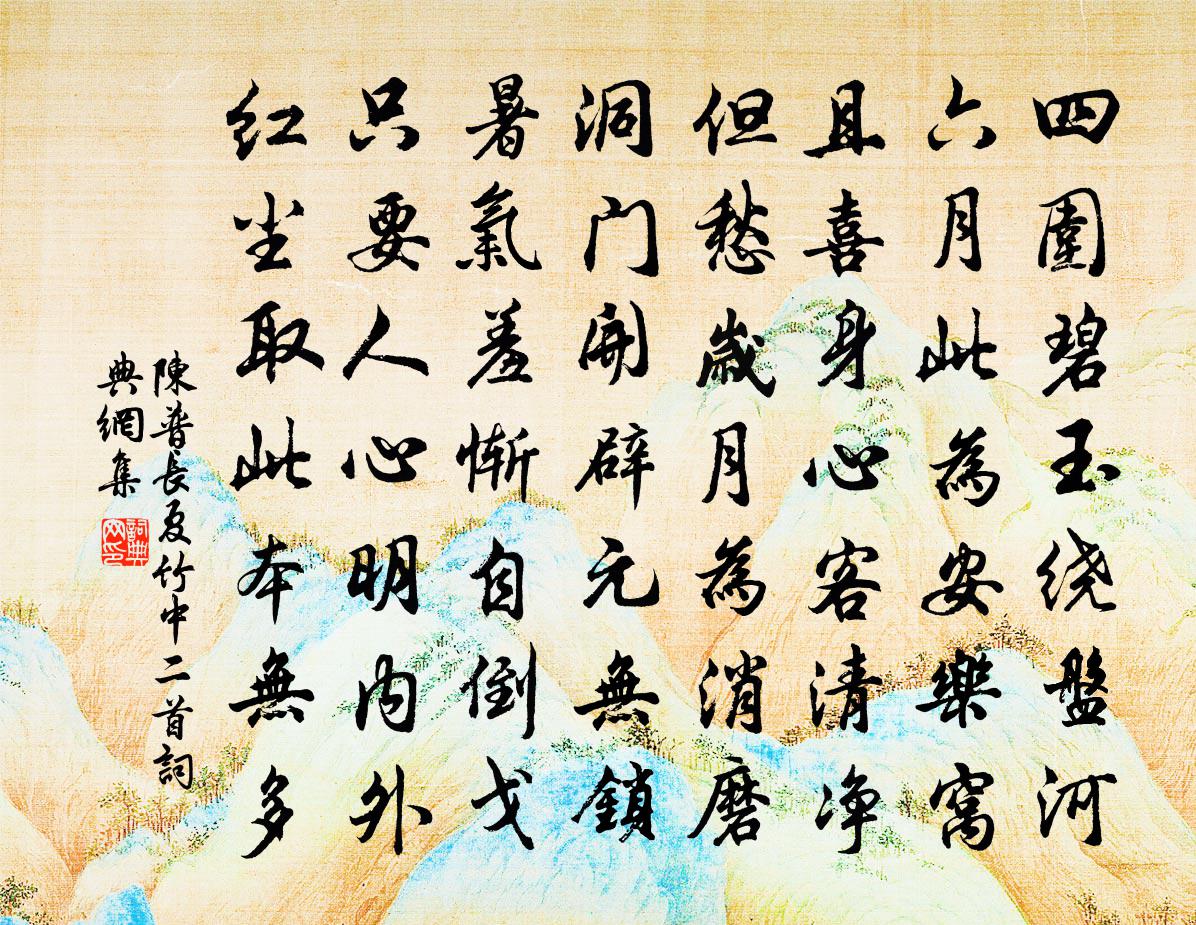 四圍碧玉绕盤河
六月此為安樂窩
且喜身心客清净
但愁歲月為消磨
洞門開辟元無鎖
暑氣羞惭自倒戈
只要人心明内外
红尘取此本無多
陳普長夏竹中二首詞
典網集
詞典
网印